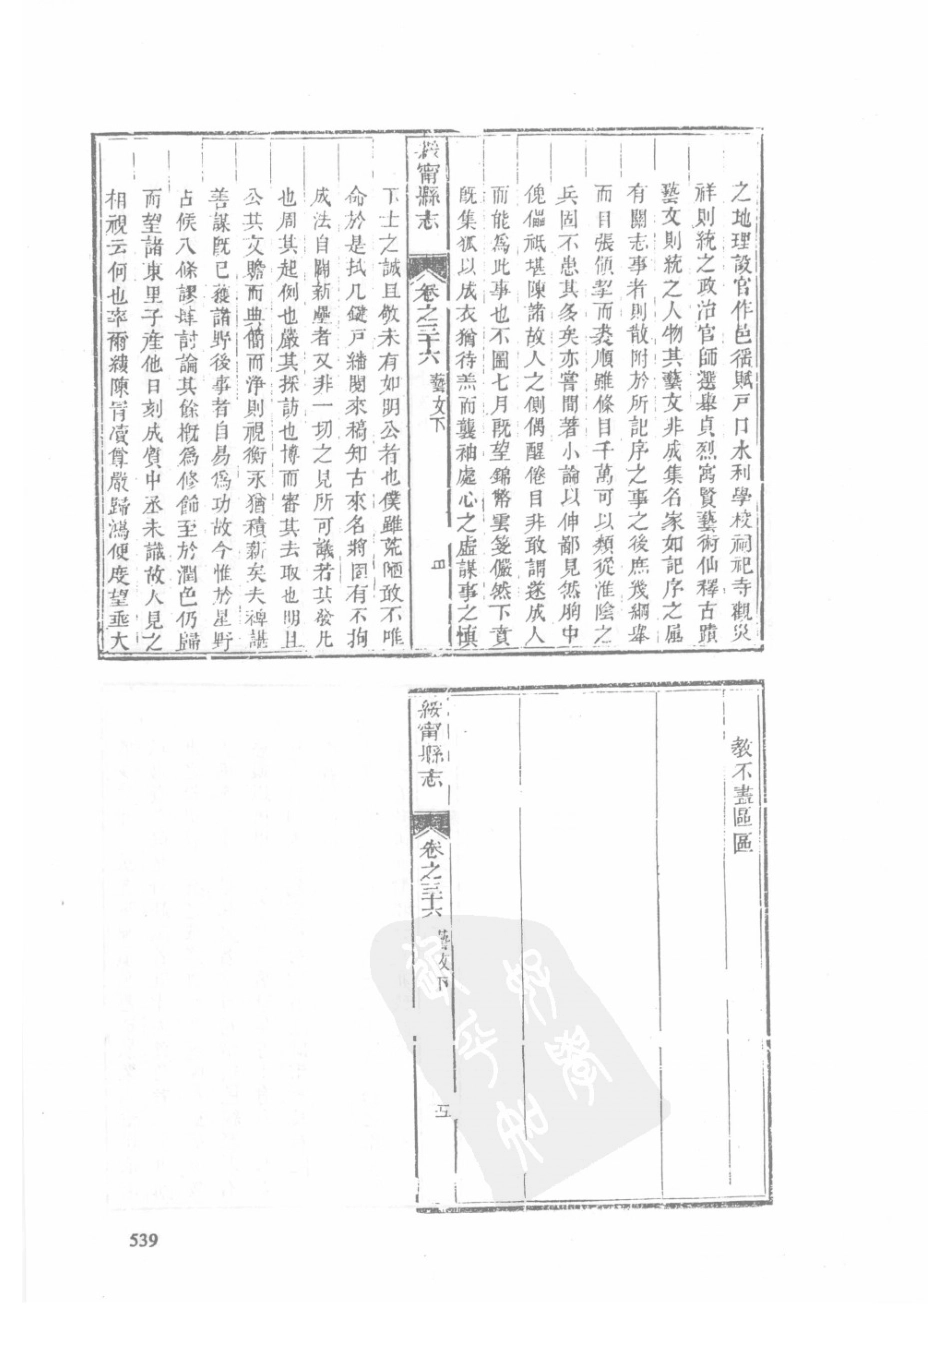 之地理設官作邑徭賦戸口水利學校祠祀寺觀災
祥則統之政治官師選舉貞烈寓賢藝術仙釋古蹟
藝文則統之人物其藝文非成集名家如記序之屬
有關志事者則散附於所記序之事之後庶幾綱舉
而目張領挈而裘順雖條目千萬可以類從淮陰之
兵固不患其多矣亦嘗間著小論以伸鄙見然胸中
傀儡祇堪陳諸故人之側偶醒倦目非敢謂遂成人
而能爲此事也不圖七月既望錦幣雲箋儼然下賁
既集狐以成衣猶待羔而襲袖處心之虛謀事之慎
綏甯縣志 卷之三十六 藝文下 四
下士之誠且敬未有如明公者也僕雖荒陋敢不唯
命於是拭几鍵戸繙閱來稿知古來名將固有不拘
成法自闢新壘者又非一切之見所可議若其發凡
也周其起例也嚴其採訪也博而審其去取也明且
公其文贍而典簡而淨則視衡永猶積薪矣夫裨諶
善謀既已獲諸野後事者自易爲功故今惟於星野
占候八條謬爲討論其餘槪爲修飾至於潤色仍歸
而望諸東里子産他日刻成賓中丞未識故人見之
相視云何也率爾縷陳冐凟尊嚴歸鴻便度望亟大
教不盡區區
綏甯縣志 卷之三十六 藝文下 五
539